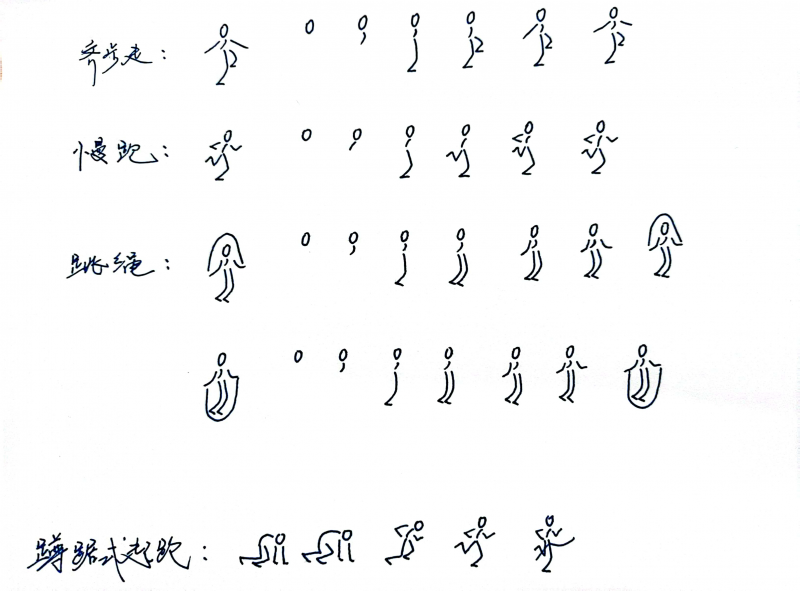 齐步走：
慢跑：
跳绳：
蹲踞式起跑：